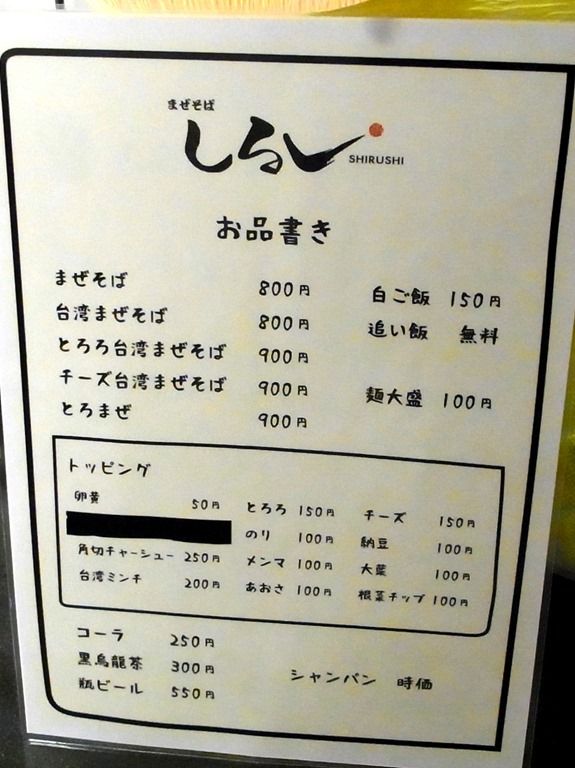 まぜそば
しるし SHIRUSHI
お品書き
まぜそば 800円
台湾まぜそば 800円
とろろ台湾まぜそば 900円
チーズ台湾まぜそば 900円
とろまぜ 900円
白ご飯 150円
追い飯 無料
麺大盛 100円
トッピング
卵黄 50円
角切チャーシュー 250円
台湾ミンチ 200円
とろろ 150円
のり 100円
メンマ 100円
あおさ 100円
チーズ 150円
納豆 100円
大葉 100円
根菜チップ 100円
コーラ 250円
黒烏龍茶 300円
瓶ビール 550円
シャンパン 時価